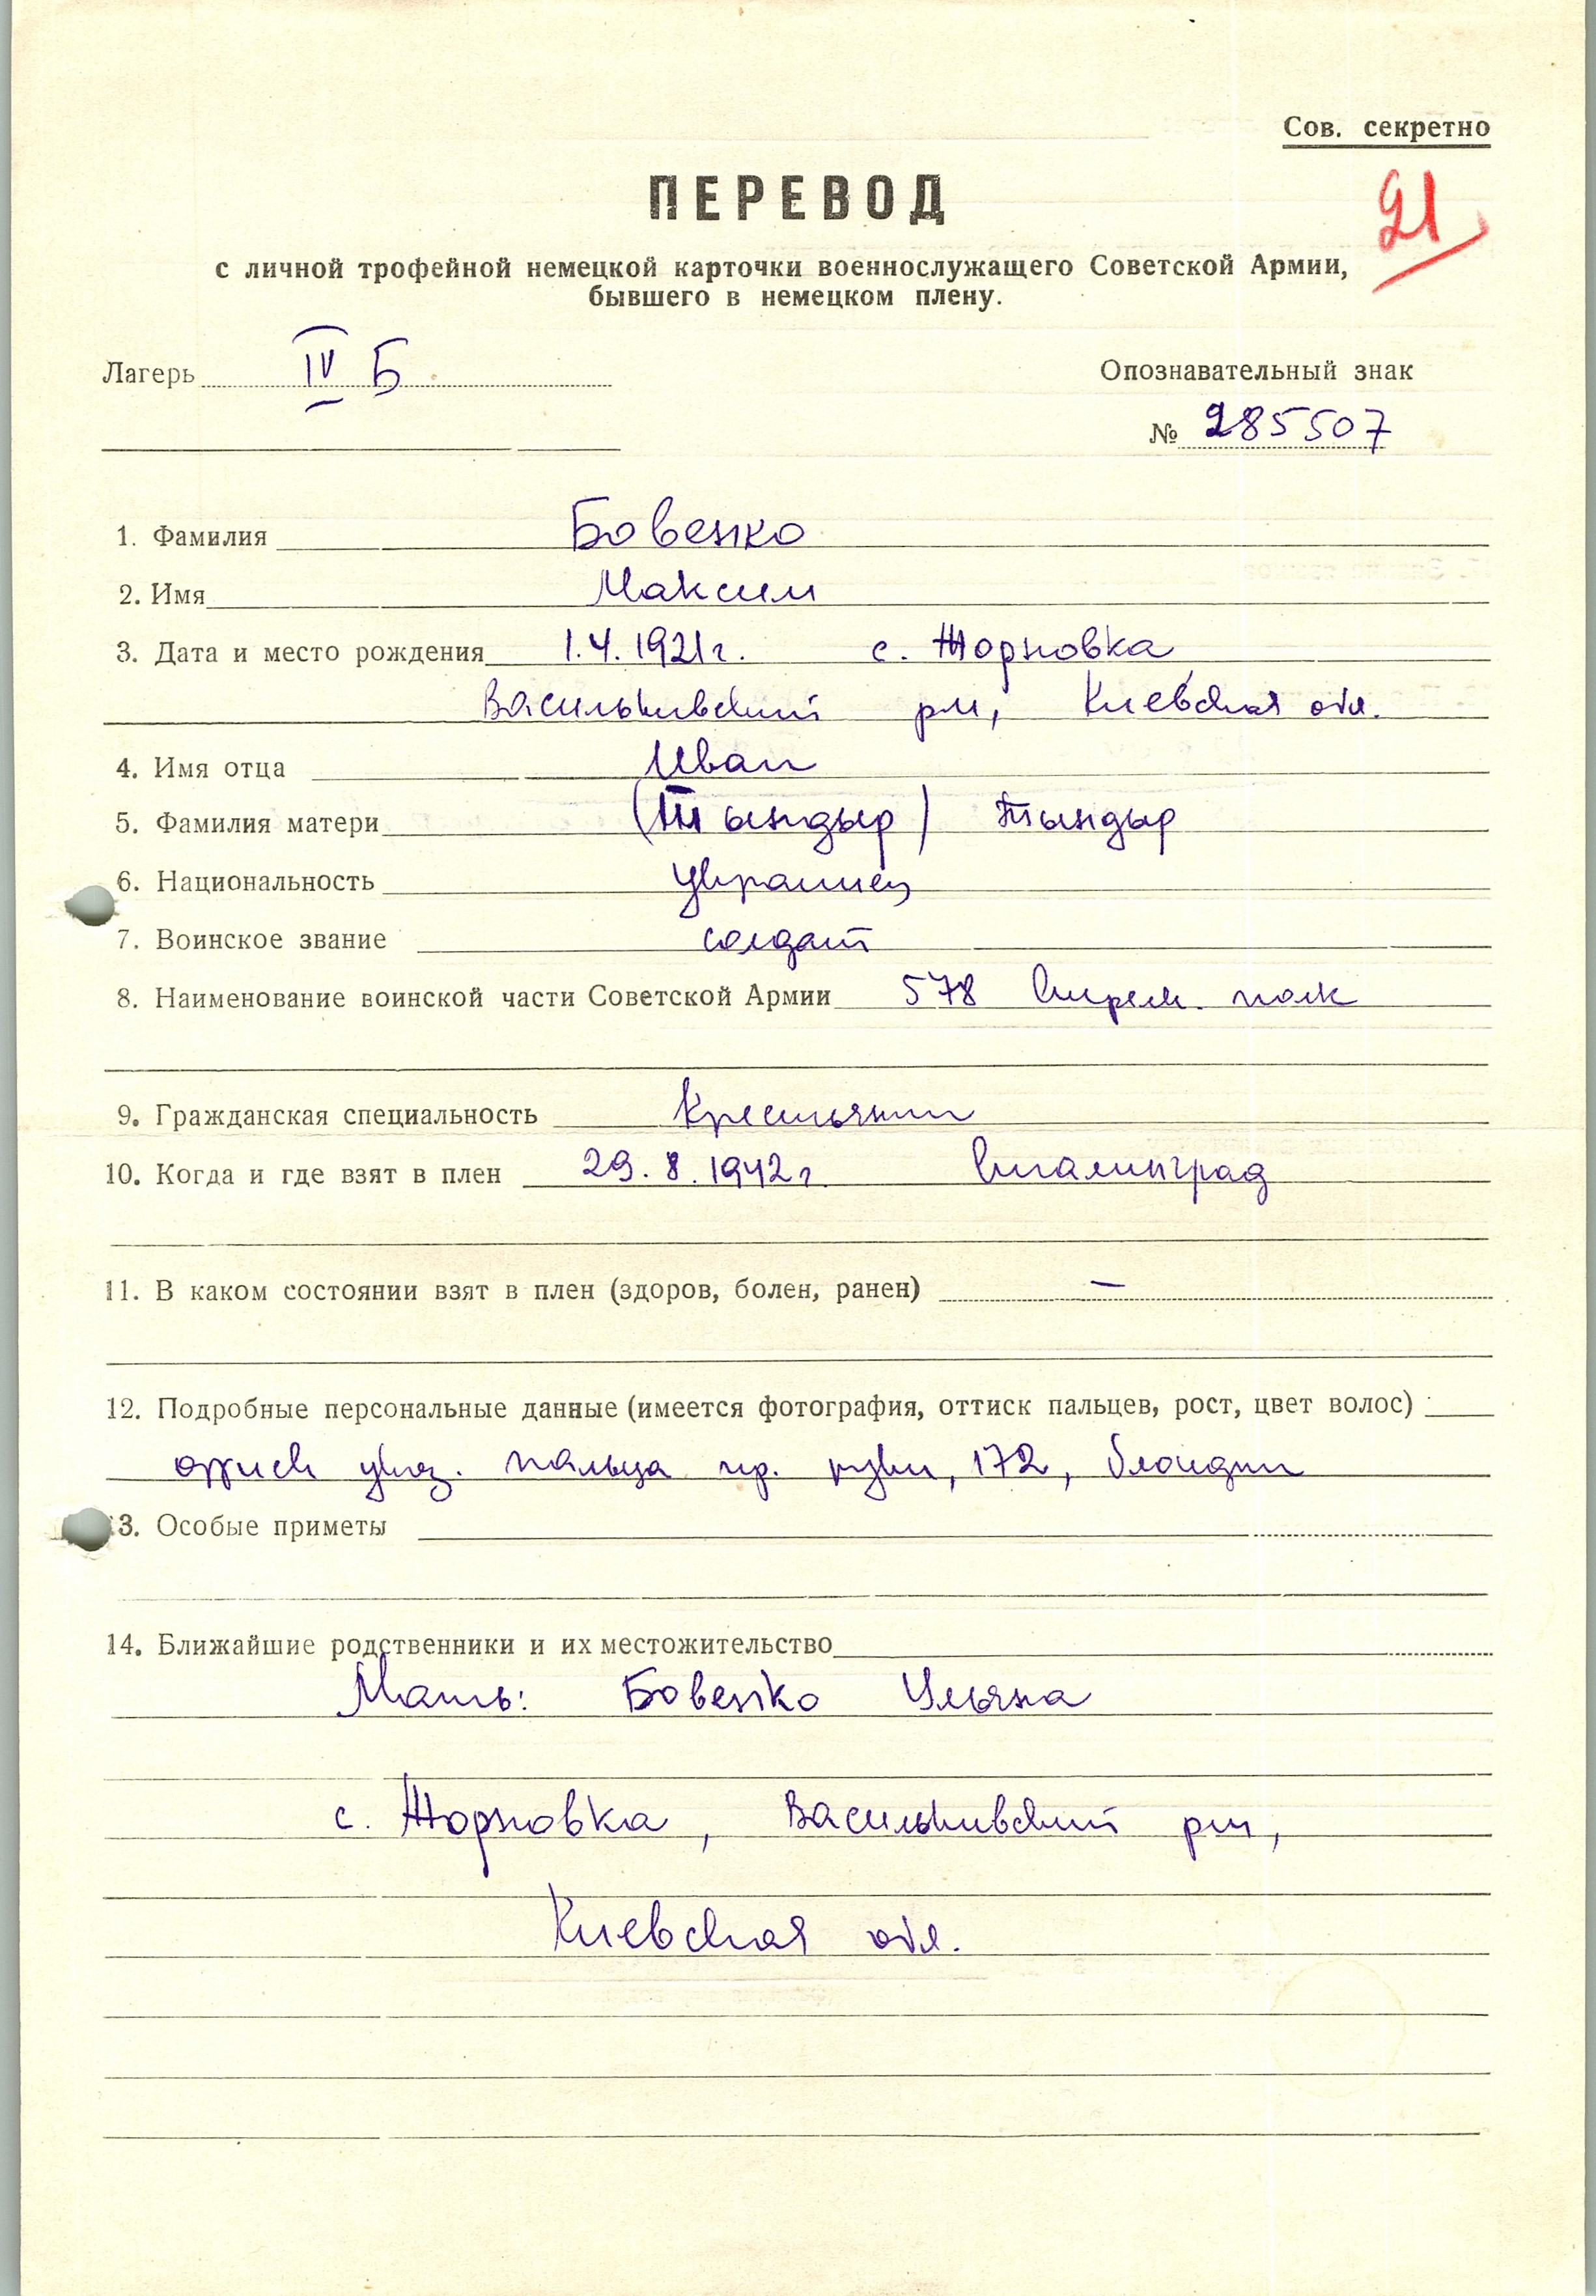 Сов. секретно
ПЕРЕВОД
21
с личной трофейной немецкой карточки военнослужащего Советской Армии,
бывшего в немецком плену.
Лагерь IV Б
Опознавательный знак
№ 285507
1. Фамилия Бовенко
2. Имя Максим
3. Дата и место рождения 1.4.1921г. с. Жорновка
Васильковский р-н, Киевская обл.
4. Имя отца Иван
5. Фамилия матери (Тындыр) Тындыр
6. Национальность украинец
7. Воинское звание солдат
8. Наименование воинской части Советской Армии 578 стрелк. полк
9. Гражданская специальность Крестьянин
10. Когда и где взят в плен 29.8.1942г. Сталинград
11. В каком состоянии взят в плен (здоров, болен, ранен) —
12. Подробные персональные данные (имеется фотография, оттиск пальцев, рост, цвет волос)
оттиск указ. пальца пр. руки, 172, блондин
13. Особые приметы
14. Ближайшие родственники и их местожительство
Мать: Бовенко Ульяна
с. Жорновка, Васильковский р-н,
Киевская обл.